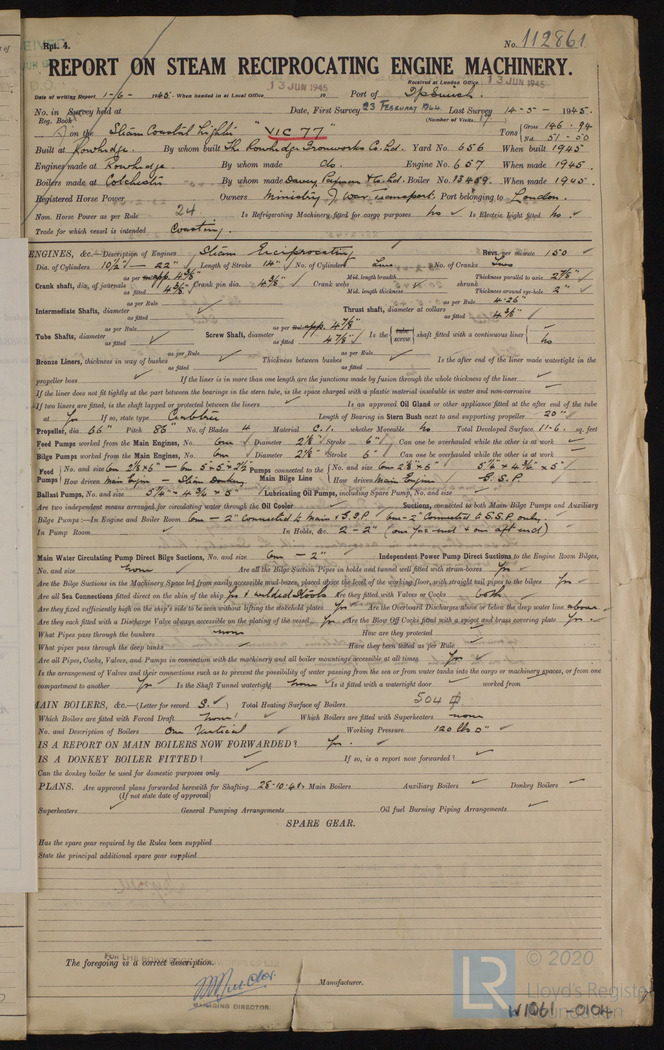 Rpt. 4.
No. 112861
REPORT ON STEAM RECIPROCATING ENGINE MACHINERY.
Received at London Office 13 JUN 1945
13 JUN 1945
Date of writing Report 1-6- 1945. When handed in at Local Office 19 Port of Ipswich.
No. in Survey held at Date, First Survey 23 FEBRUARY 1944 Last Survey 14-5- 1945.
Reg. Book. (Number of Visits 17)
on the Steam Coastal Lighter "VIC 77" Tons Gross 146.94
Net 51.50
Built at Rowhedge. By whom built The Rowhedge Ironworks Co. Ltd. Yard No. 656 When built 1945
Engines made at Rowhedge By whom made do. Engine No. 657 When made 1945.
Boilers made at Colchester By whom made Davey Paxman & Co. Ltd. Boiler No. 13459. When made 1945.
Registered Horse Power Owners Ministry of War Transport Port belonging to London.
Nom. Horse Power as per Rule 24 Is Refrigerating Machinery fitted for cargo purposes No Is Electric Light fitted No.
Trade for which vessel is intended Coasting.
ENGINES, &c.—Description of Engines Steam Reciprocating Revs. per minute 150
Dia. of Cylinders 10½" — 22" Length of Stroke 14" No. of Cylinders Two No. of Cranks Two
Crank shaft, dia. of journals as per Rule app. 4⅜" as fitted 4⅜" Crank pin dia. 4⅜" Crank webs Mid. length breadth Mid. length thickness shrunk Thickness parallel to axis 2⅞" Thickness around eye-hole 2"
Intermediate Shafts, diameter as per Rule as fitted Thrust shaft, diameter at collars as per Rule 4.26" as fitted 4⅜"
Tube Shafts, diameter as per Rule as fitted Screw Shaft, diameter as per Rule app. 4⅞" as fitted 4⅞" Is the tube screw shaft fitted with a continuous liner No
Bronze Liners, thickness in way of bushes as per Rule as fitted Thickness between bushes as per Rule as fitted Is the after end of the liner made watertight in the
propeller boss If the liner is in more than one length are the junctions made by fusion through the whole thickness of the liner
If the liner does not fit tightly at the part between the bearings in the stern tube, is the space charged with a plastic material insoluble in water and non-corrosive
If two liners are fitted, is the shaft lapped or protected between the liners Is an approved Oil Gland or other appliance fitted at the after end of the tube
shaft Yes If so, state type Crabtree Length of Bearing in Stern Bush next to and supporting propeller 20"
Propeller, dia. 66" Pitch 86" No. of Blades 4 Material C.I. whether Moveable No Total Developed Surface 11.6 sq. feet
Feed Pumps worked from the Main Engines, No. One Diameter 2⅛" Stroke 6" Can one be overhauled while the other is at work
Bilge Pumps worked from the Main Engines, No. One Diameter 2⅛" Stroke 6" Can one be overhauled while the other is at work
Feed Pumps No. and size One 2⅛ x 6" — One 5 x 5 x 2½ How driven Main Engine — Steam Donkey. Pumps connected to the Main Bilge Line No. and size One 2⅛ x 6" 5¼" x 4¾" x 5" How driven Main Engine G.S.P
Ballast Pumps, No. and size 5¼" x 4¾ x 5" Lubricating Oil Pumps, including Spare Pump, No. and size
Are two independent means arranged for circulating water through the Oil Cooler Suctions, connected to both Main Bilge Pumps and Auxiliary
Bilge Pumps:—In Engine and Boiler Room One — 2" connected to Main & G.S.P One — 2" connected to G.S.P only.
In Pump Room In Holds, &c. 2 – 2" (one for'end & one aft end)
Main Water Circulating Pump Direct Bilge Suctions, No. and size One — 2" Independent Power Pump Direct Suctions to the Engine Room Bilges,
No. and size None Are all the Bilge Suction Pipes in holds and tunnel well fitted with strum-boxes Yes
Are the Bilge Suctions in the Machinery Space led from easily accessible mud-boxes, placed above the level of the working floor, with straight tail pipes to the bilges Yes
Are all Sea Connections fitted direct on the skin of the ship Yes & welded Are they fitted with Valves or Cocks both
Are they fixed sufficiently high on the ship's side to be seen without lifting the stokehold plates Yes Are the Overboard Discharges above or below the deep water line above
Are they each fitted with a Discharge Valve always accessible on the plating of the vessel Yes Are the Blow Off Cocks fitted with a spigot and brass covering plate Yes
What Pipes pass through the bunkers none How are they protected
What pipes pass through the deep tanks Have they been tested as per Rule
Are all Pipes, Cocks, Valves, and Pumps in connection with the machinery and all boiler mountings accessible at all times Yes
Is the arrangement of Valves and their connections such as to prevent the possibility of water passing from the sea or from water tanks into the cargo or machinery spaces, or from one
compartment to another Yes Is the Shaft Tunnel watertight None Is it fitted with a watertight door worked from
MAIN BOILERS, &c.—(Letter for record S.) Total Heating Surface of Boilers 504
Which Boilers are fitted with Forced Draft None Which Boilers are fitted with Superheaters none
No. and Description of Boilers One Vertical Working Pressure 120 lbs □"
IS A REPORT ON MAIN BOILERS NOW FORWARDED? Yes.
IS A DONKEY BOILER FITTED? If so, is a report now forwarded?
Can the donkey boiler be used for domestic purposes only
PLANS. Are approved plans forwarded herewith for Shafting 28.10.41 Main Boilers Auxiliary Boilers Donkey Boilers
(If not state date of approval)
Superheaters General Pumping Arrangements Oil fuel Burning Piping Arrangements
SPARE GEAR.
Has the spare gear required by the Rules been supplied
State the principal additional spare gear supplied
The foregoing is a correct description.
Manufacturer.
MANAGING DIRECTOR.
© 2020
LR
Lloyd's Register
Foundation
W1061-0104